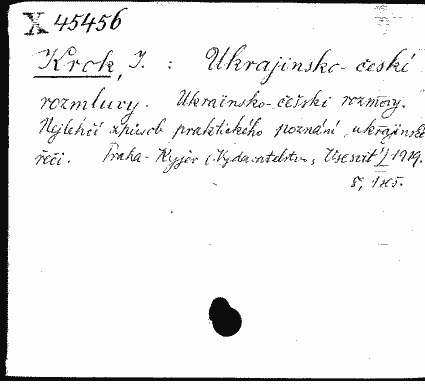 X 45456
Krok, I. : Ukrajinsko-česki
rozmluvy. Ukrainsko-češski rozmovy.
Nejlehčí způsob praktického poznání ukrajinské
řeči. Praha-Kyjev (Vydavatelstvo, Vsesvit) 1919.
8°,